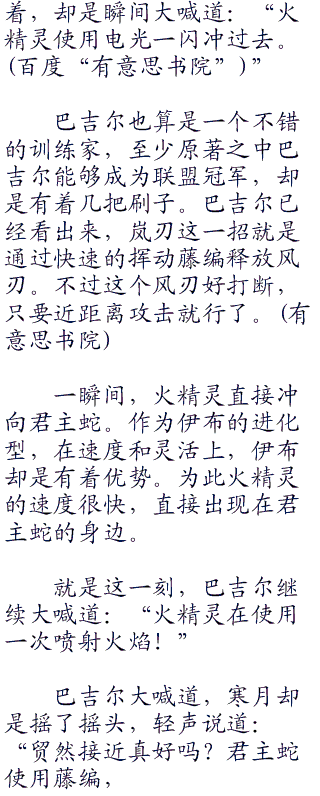 着，却是瞬间大喊道：“火
精灵使用电光一闪冲过去。
(百度“有意思书院”)”
巴吉尔也算是一个不错
的训练家，至少原著之中巴
吉尔能够成为联盟冠军，却
是有着几把刷子。巴吉尔已
经看出来，岚刃这一招就是
通过快速的挥动藤编释放风
刃。不过这个风刃好打断，
只要近距离攻击就行了。(有
意思书院)
一瞬间，火精灵直接冲
向君主蛇。作为伊布的进化
型，在速度和灵活上，伊布
却是有着优势。为此火精灵
的速度很快，直接出现在君
主蛇的身边。
就是这一刻，巴吉尔继
续大喊道：“火精灵在使用
一次喷射火焰！”
巴吉尔大喊道，寒月却
是摇了摇头，轻声说道：
“贸然接近真好吗？君主蛇
使用藤编，